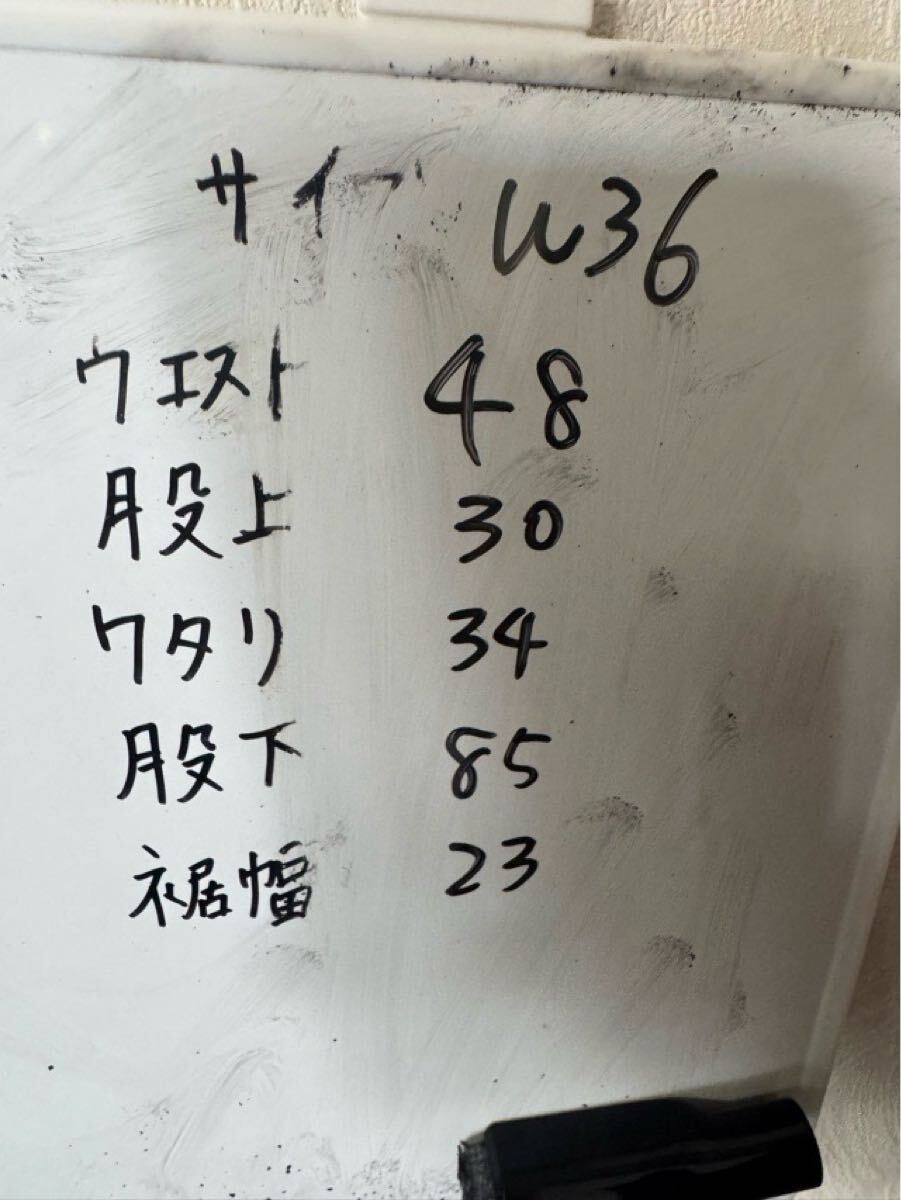 サイズ W36
ウエスト 48
股上 30
ワタリ 34
股下 85
裾幅 23